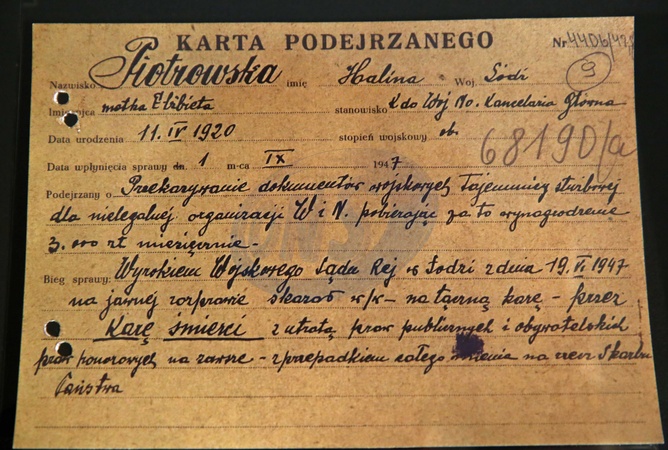 KARTA PODEJRZANEGO Nr 4406/47
Nazwisko Piotrowska imię Halina Woj. Łódź 9
Imię ojca matka Elżbieta stanowisko K do Woj Mo. Kancelaria Główna
Data urodzenia 11. IV 1920 stopień wojskowy ob. 68190/a
Data wpłynięcia sprawy dn. 1 m-ca IX 1947
Podejrzany o Przekazywanie dokumentów wojskowych, tajemnicy służbowej
dla nielegalnej organizacji W i N. pobierając za to wynagrodzenie
3.000 zł miesięcznie -
Bieg sprawy: Wyrokiem Wojskowego Sądu Rej w Łodzi z dnia 19. VI 1947
na jawnej rozprawie skazał w/w - na łączną karę - przez
Karę śmierci z utratą praw publicznych i obywatelskich
praw honorowych na zawsze - z przepadkiem całego mienia na rzecz Skarbu
Państwa